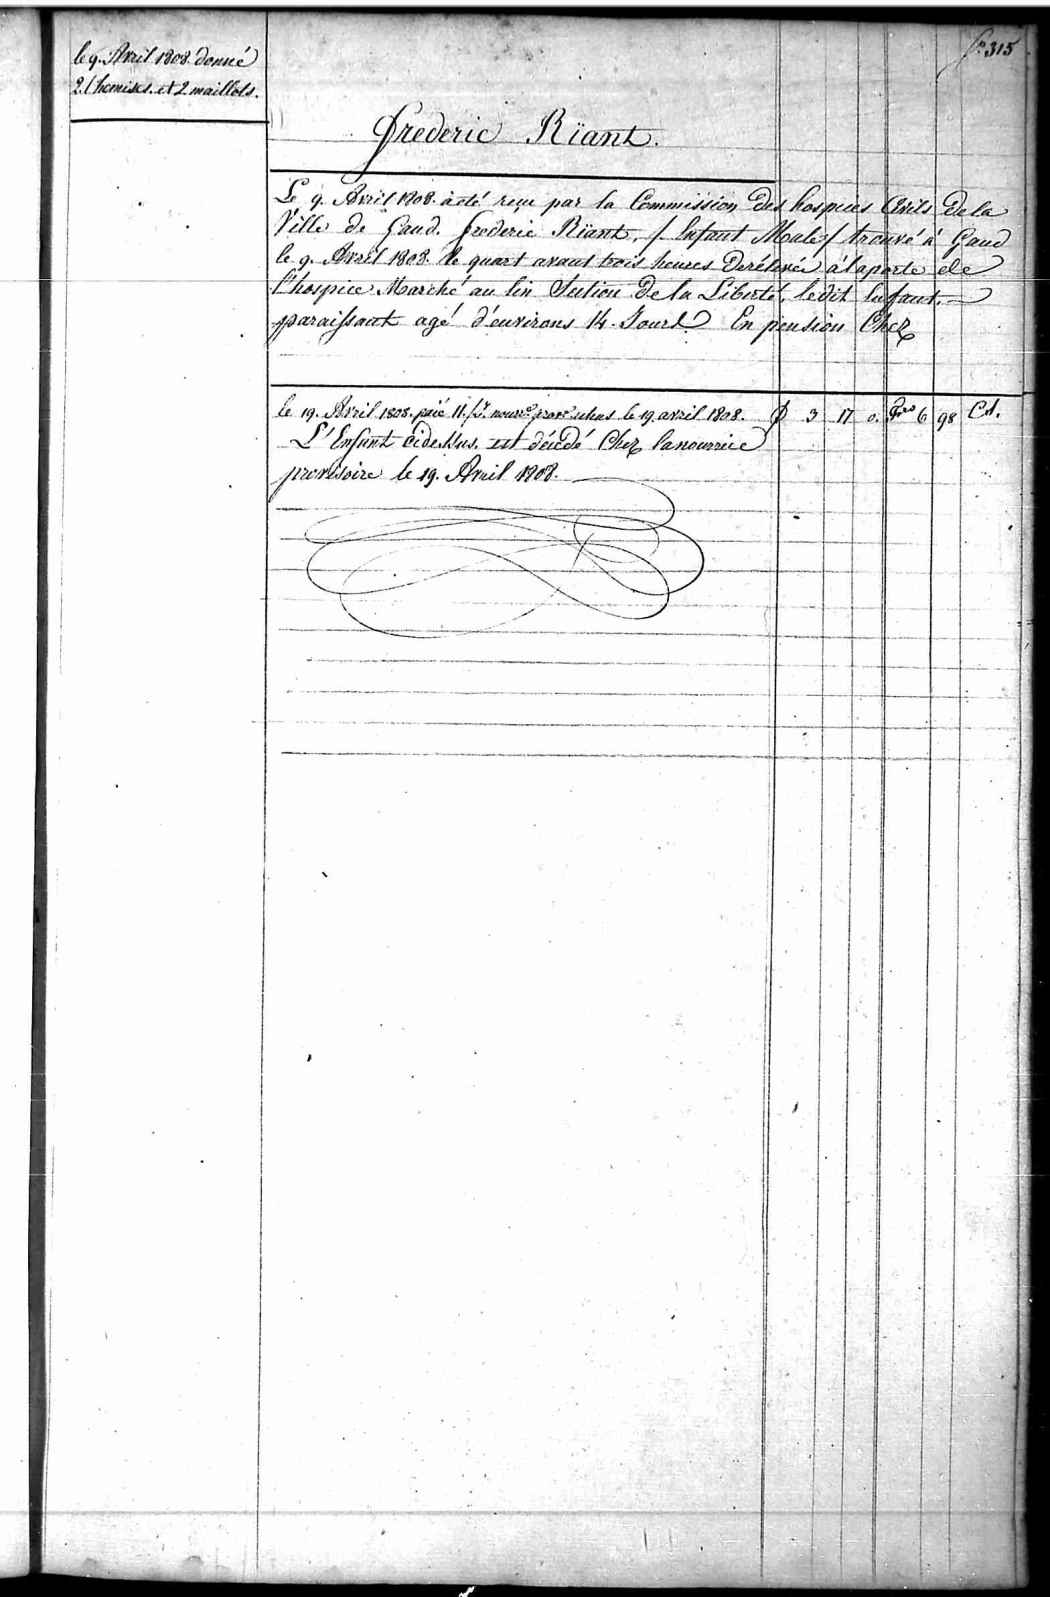 le 9. Avril 1808. donné
2 Chemises. et 2 maillots.
fo. 315
Frederic Rïant.
Le 9. Avril 1808. à eté reçu par la Commission des hospices Civils de la
Ville de Gand. frederic Rïant, / Enfant Male / trouvé à Gand
le 9. Avril 1808. le quart avant trois heures de rélevée à la porte de
l'hospice Marché au lin Section de la Liberté, le dit Enfant,
paraissant agé d'environs 14. Jours En pension Chez
le 19. Avril 1808. paié 11. nource provre le 19. avril 1808. 3 17 0. Frs 6 98 Ct.
L'Enfant cidessus. est décedé Chez la nourrice
provisoire le 19. Avril 1808.